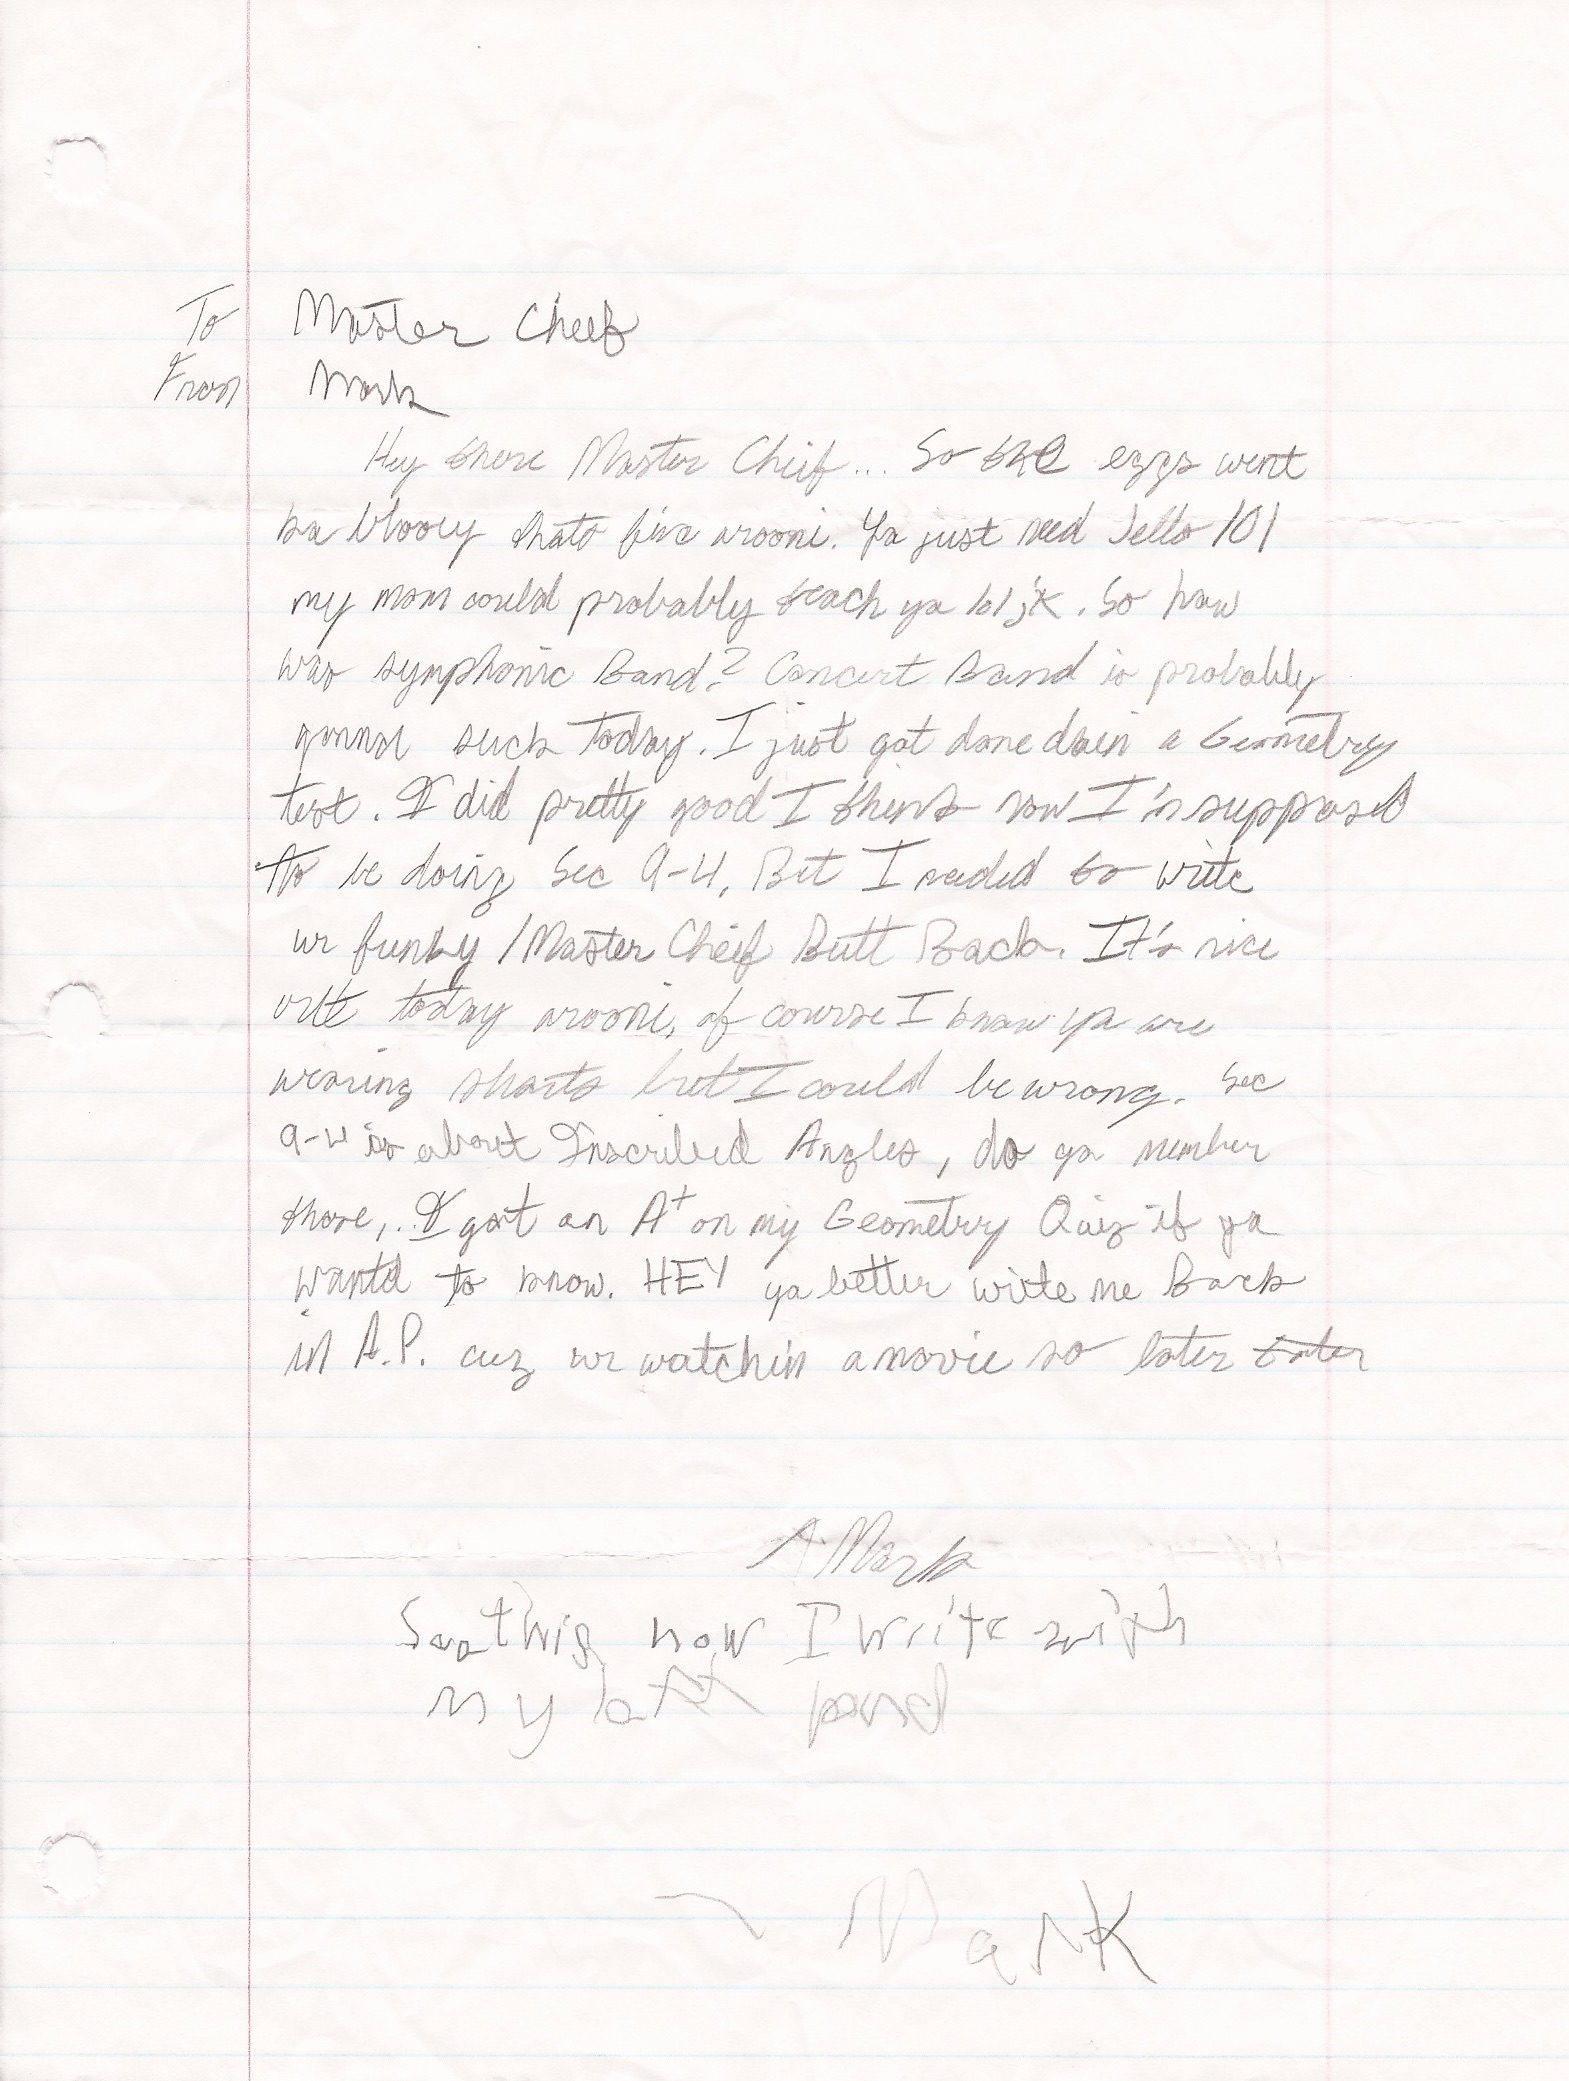 To Master Cheif
From Mark
Hey there Master Cheif... So the eggs went
ka blooey thats fine arooni. Ya just need Jello 101
my mom could probably teach ya lol jk. So how
was symphonic Band? Concert Band is probably
gonna suck today. I just got done doin a Geometry
test. I did pretty good I think now I'm supposed
to be doing Sec 9-4, But I needed to write
ur funky / Master Cheif Butt Back. It's nice
out today arooni, of course I know ya are
wearing shorts but I could be wrong. Sec
9-4 is about Inscribed Angles, do ya member
those,.. I got an A+ on my Geometry Quiz if ya
wantd to know. HEY ya better write me Back
in A.P. cuz ur watchin a movie so later
Mark
now I write with
my left hand
~ Mark